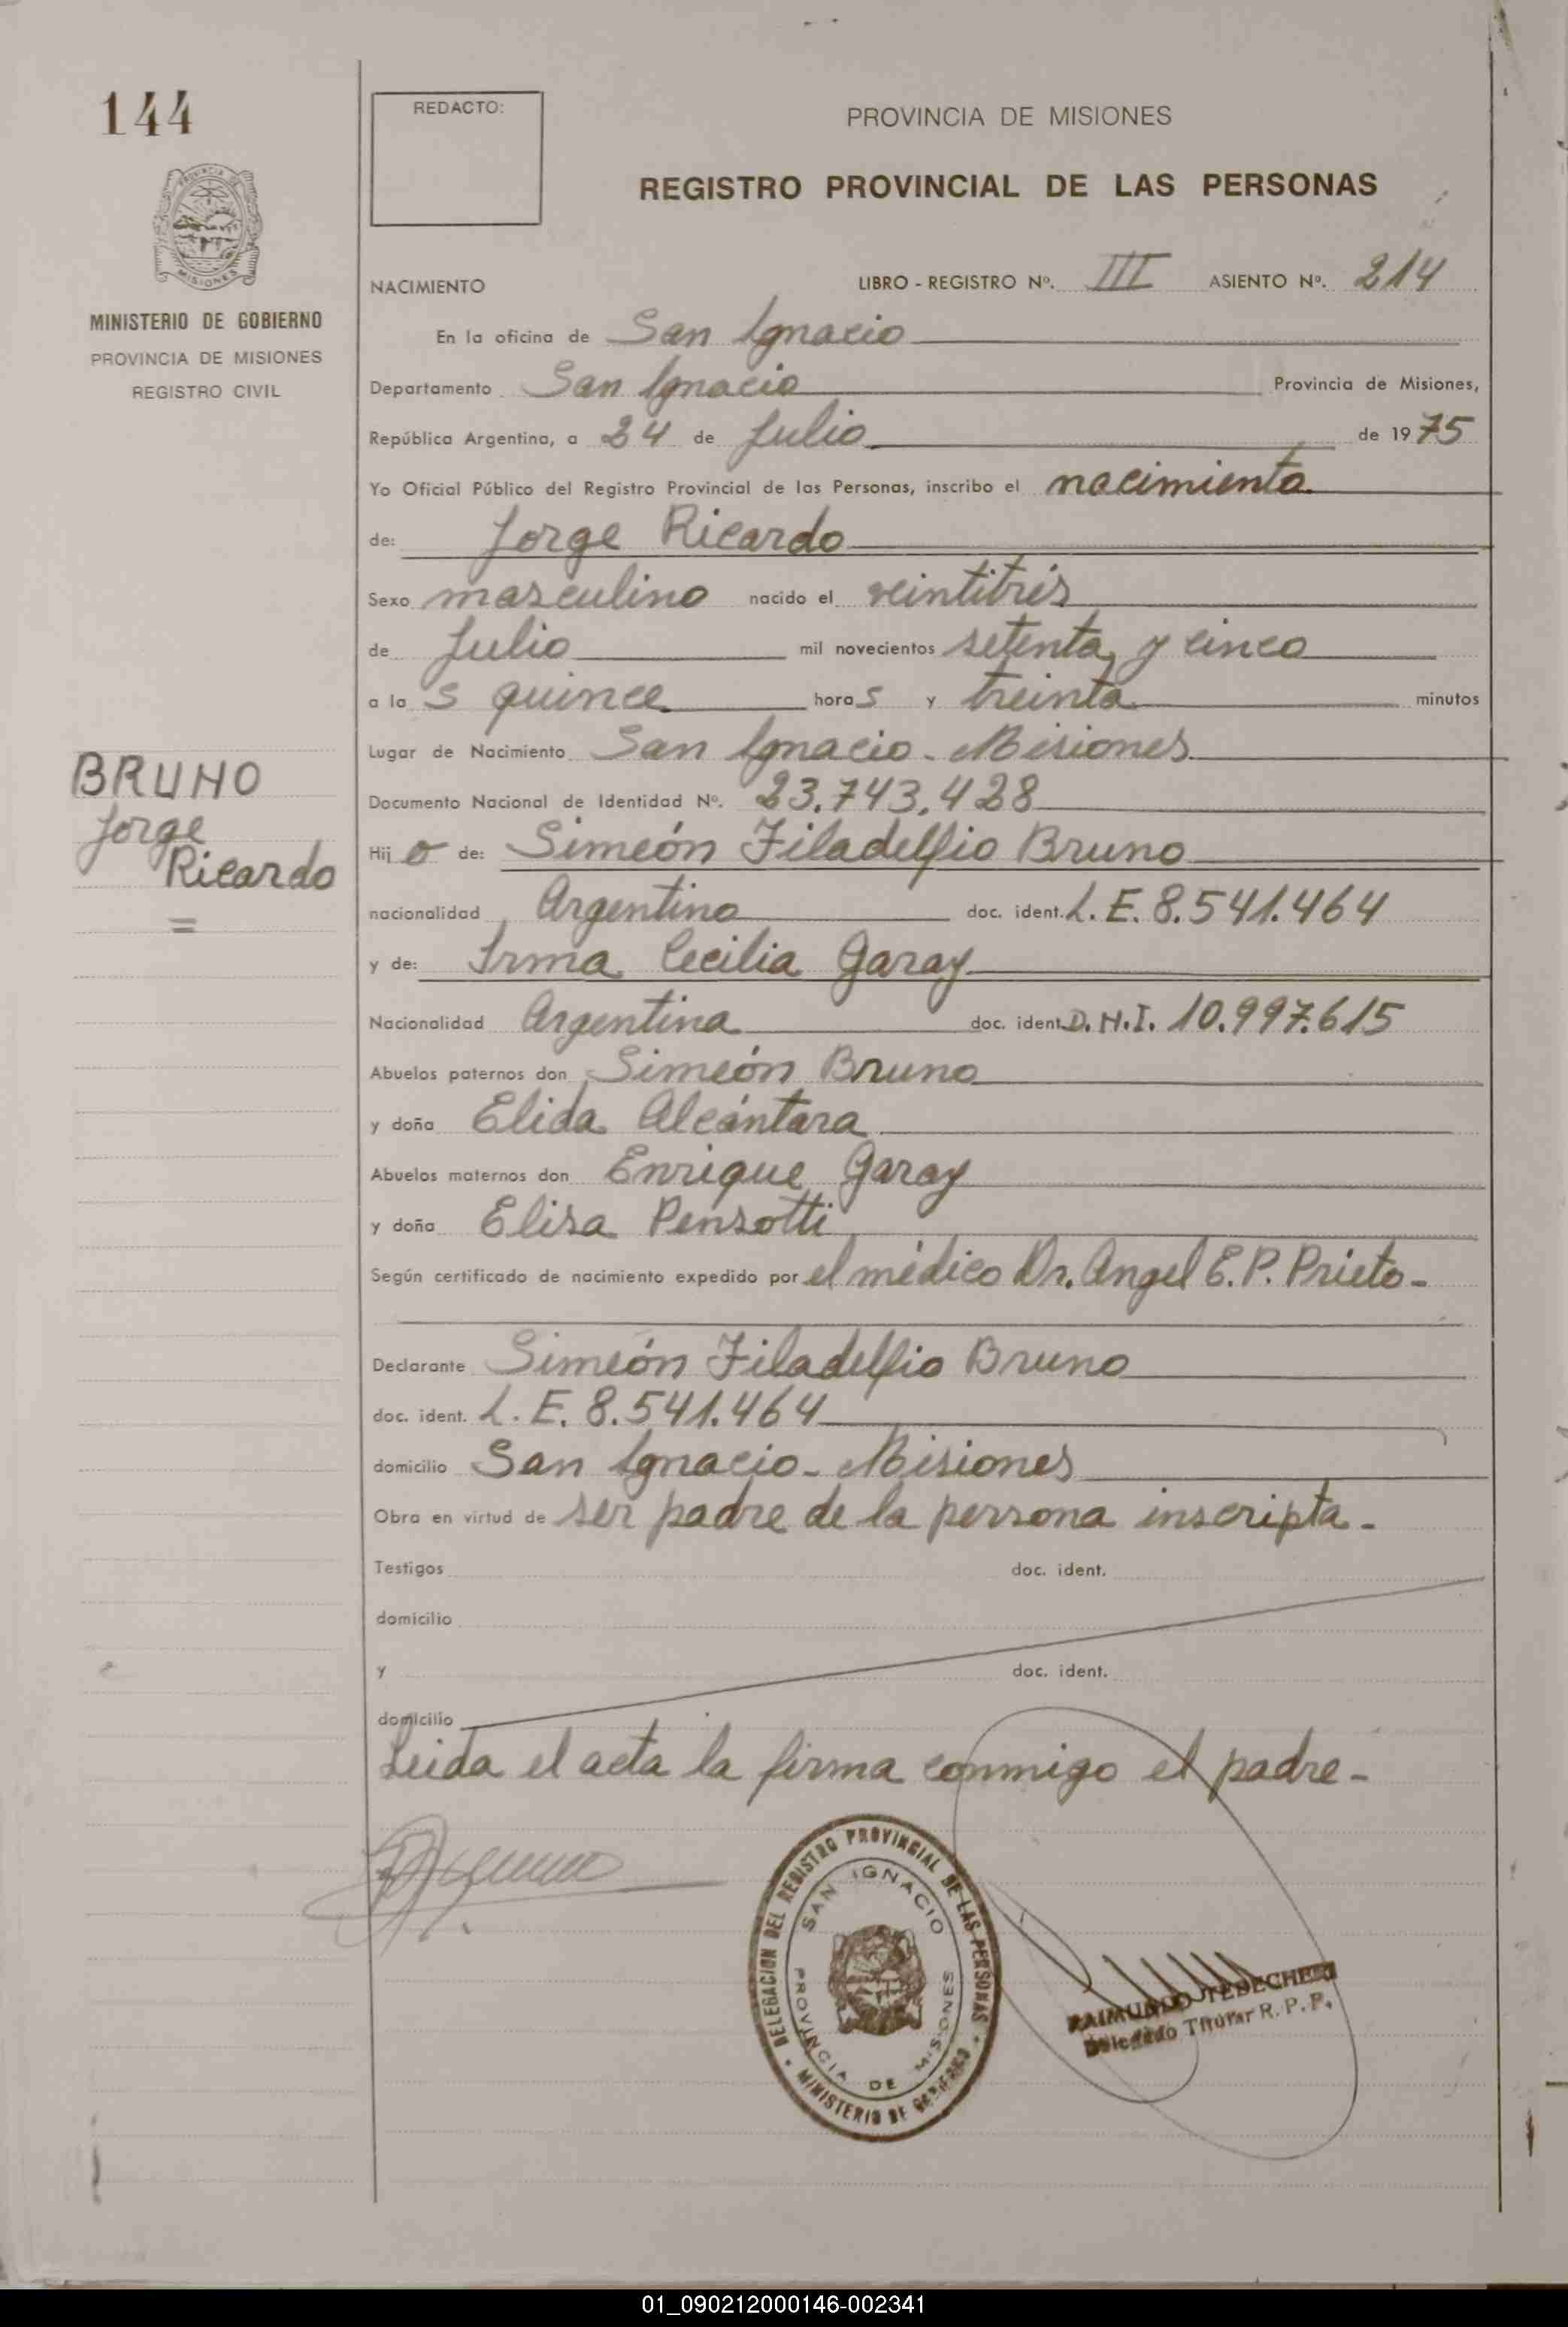 144
REDACTO:
PROVINCIA DE MISIONES
REGISTRO PROVINCIAL DE LAS PERSONAS
MISIONES
MINISTERIO DE GOBIERNO
PROVINCIA DE MISIONES
REGISTRO CIVIL
NACIMIENTO LIBRO - REGISTRO Nº. III ASIENTO Nº. 214
En la oficina de San Ignacio
Departamento San Ignacio Provincia de Misiones,
República Argentina, a 24 de Julio de 1975
Yo Oficial Público del Registro Provincial de las Personas, inscribo el nacimiento
de: Jorge Ricardo
Sexo masculino nacido el veintitrés
de Julio mil novecientos setenta y cinco
a las quince horas y treinta minutos
Lugar de Nacimiento San Ignacio - Misiones
BRUNO
Jorge
Ricardo
=
Documento Nacional de Identidad Nº. 23.743.428
Hijo de: Simeón Filadelfio Bruno
nacionalidad Argentino doc. ident. L.E. 8.541.464
y de: Irma Cecilia Garay
Nacionalidad Argentina doc. ident. D.N.I. 10.997.615
Abuelos paternos don Simeón Bruno
y doña Elida Alcántara
Abuelos maternos don Enrique Garay
y doña Elisa Pensotti
Según certificado de nacimiento expedido por el médico Dr. Angel E.P. Prieto -
Declarante Simeón Filadelfio Bruno
doc. ident. L.E. 8.541.464
domicilio San Ignacio - Misiones
Obra en virtud de ser padre de la persona inscripta -
Testigos doc. ident.
domicilio
y doc. ident.
domicilio
Leida el acta la firma conmigo el padre -
DELEGACION DEL REGISTRO PROVINCIAL DE LAS PERSONAS
MINISTERIO DE GOBIERNO
SAN IGNACIO
PROVINCIA DE MISIONES
RAIMUNDO
Delegado Titular R. P. P.
01_090212000146-002341